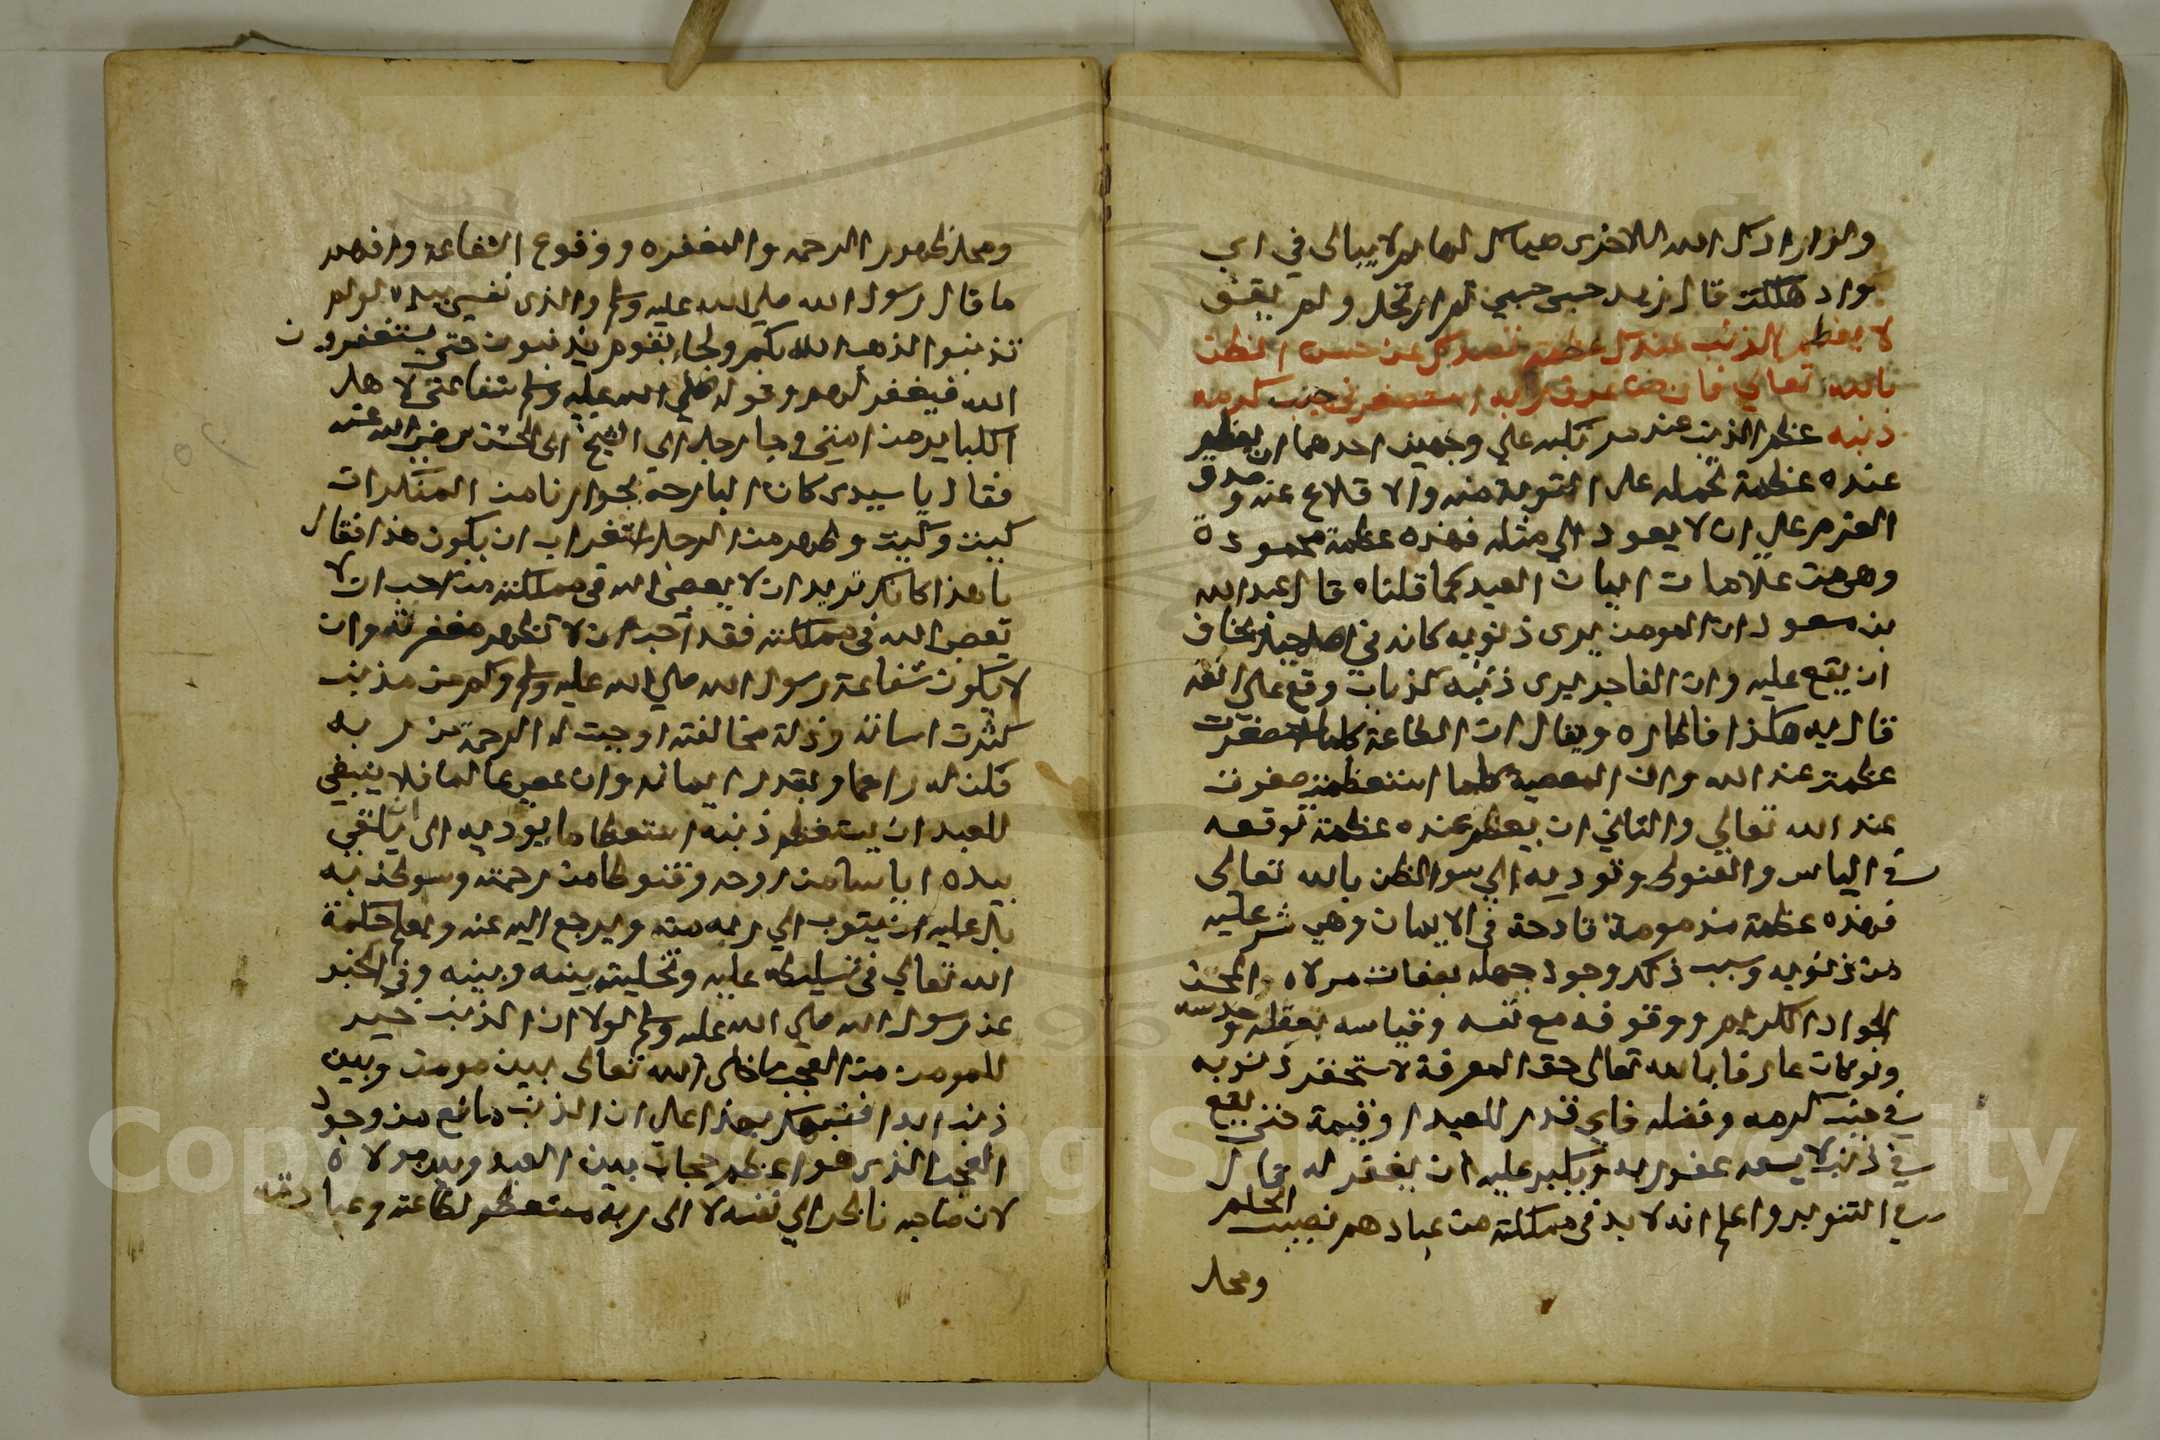 لا يعظم الذنب عندك عظمة تصدك عن حسن الظن
بالله تعالى فان من عرف ربه استصغر في جنب كرمه
ذنبه عظم الذنب عند مرتكبه علي وجهين احدهما ان يعظم
عنده عظمة تحمله على التوبة منه والاقلاع عنه وصدق
العزم على ان لا يعود الي مثله فهذه عظمة محمودة
وهي من علامات ايمان العبد كما قلناه قال عبد الله
بن مسعود ان المومن يرى ذنوبه كانه في اصل جبل يخاف
ان يقع عليه وان الفاجر يرى ذنبه كذباب وقع علي انفه
قال به هكذا فاطاره ويقال ان الطاعة كلما استصغرت
عظمت عند الله وان المعصية كلما استعظمت صغرت
عند الله تعالي والثاني ان يعظم عنده عظمة توقعه
في الياس والقنوط وتوديه الي سوء الظن بالله تعالى
فهذه عظمة مذمومة قادحة في الايمان وهي شر عليه
من ذنوبه وسبب ذلك وجود جهله بصفات مولاه المحسن
الجواد الكريم ووقوفه مع نفسه وقياسه بعقله وحدسه
ولو كان عارفا بالله تعالى حق المعرفة لاستحقر ذنوبه
في جنب كرمه وفضله فاي قدر للعبد او قيمة حتى يقع
في ذنب لا يسعه عفو ربه ويكبر عليه ان يغفر له قال
في التنوير واعلم انه لا بد في مملكته من عباد هم نصيب الحلم
ومحل
ومحل ظهور الرحمه والمغفره ووقوع الشفاعة وافهم
ما قال رسول الله صلي الله عليه وسلم والذى نفسي بيده لو لم
تذنبوا لذهب الله بكم ولجا بقوم يذنبون حتى يستغفرون
الله فيغفر لهم وقوله صلي الله عليه وسلم شفاعتي لاهل
الكباير من امتي وجا رجل الي الشيخ ابي الحسن رضي الله عنه
فقال يا سيدى كان البارحة بجوارنا من المنكرات
كيت وكيت وظهر من الرجل استغراب ان يكون هذا فقال
يا هذا كانك تريد ان لا يعصي الله في مملكته من احب ان لا
يعصي الله في مملكته فقد احب ان لا تظهر مغفرته وان
لا يكون شفاعة رسول الله صلي الله عليه وسلم وكم من مذنب
كثرت اساته وذلة مخالفته اوجبت له الرحمة من ربه
فكن له راحما وبقدر ايمانه وان عصى عالما فلا ينبغي
للعبد ان يستعظم ذنبه استعظاما يوديه الى ان يلقي
بيده اياسا من روحه وقنوطا من رحمته وسو ظن به
بل عليه ان يتوب الي ربه منه ويرجع اليه عنه ويعلم حكمة
الله تعالي في تسليطه عليه وتخليته بينه وبينه وفي الخبر
عن رسول الله صلي الله عليه وسلم لولا ان الذنب خير
للمومن من العجب ما خلى الله تعالى بين مومن وبين
ذنب ابدا فنبهك بهذا على ان الذنب مانع من وجود
العجب الذى هو اعظم حجاب بين العبد وبين مولاه
لان صاحبه ناظر الي نفسه لا الى ربه مستعظم لطاعته وعبادته